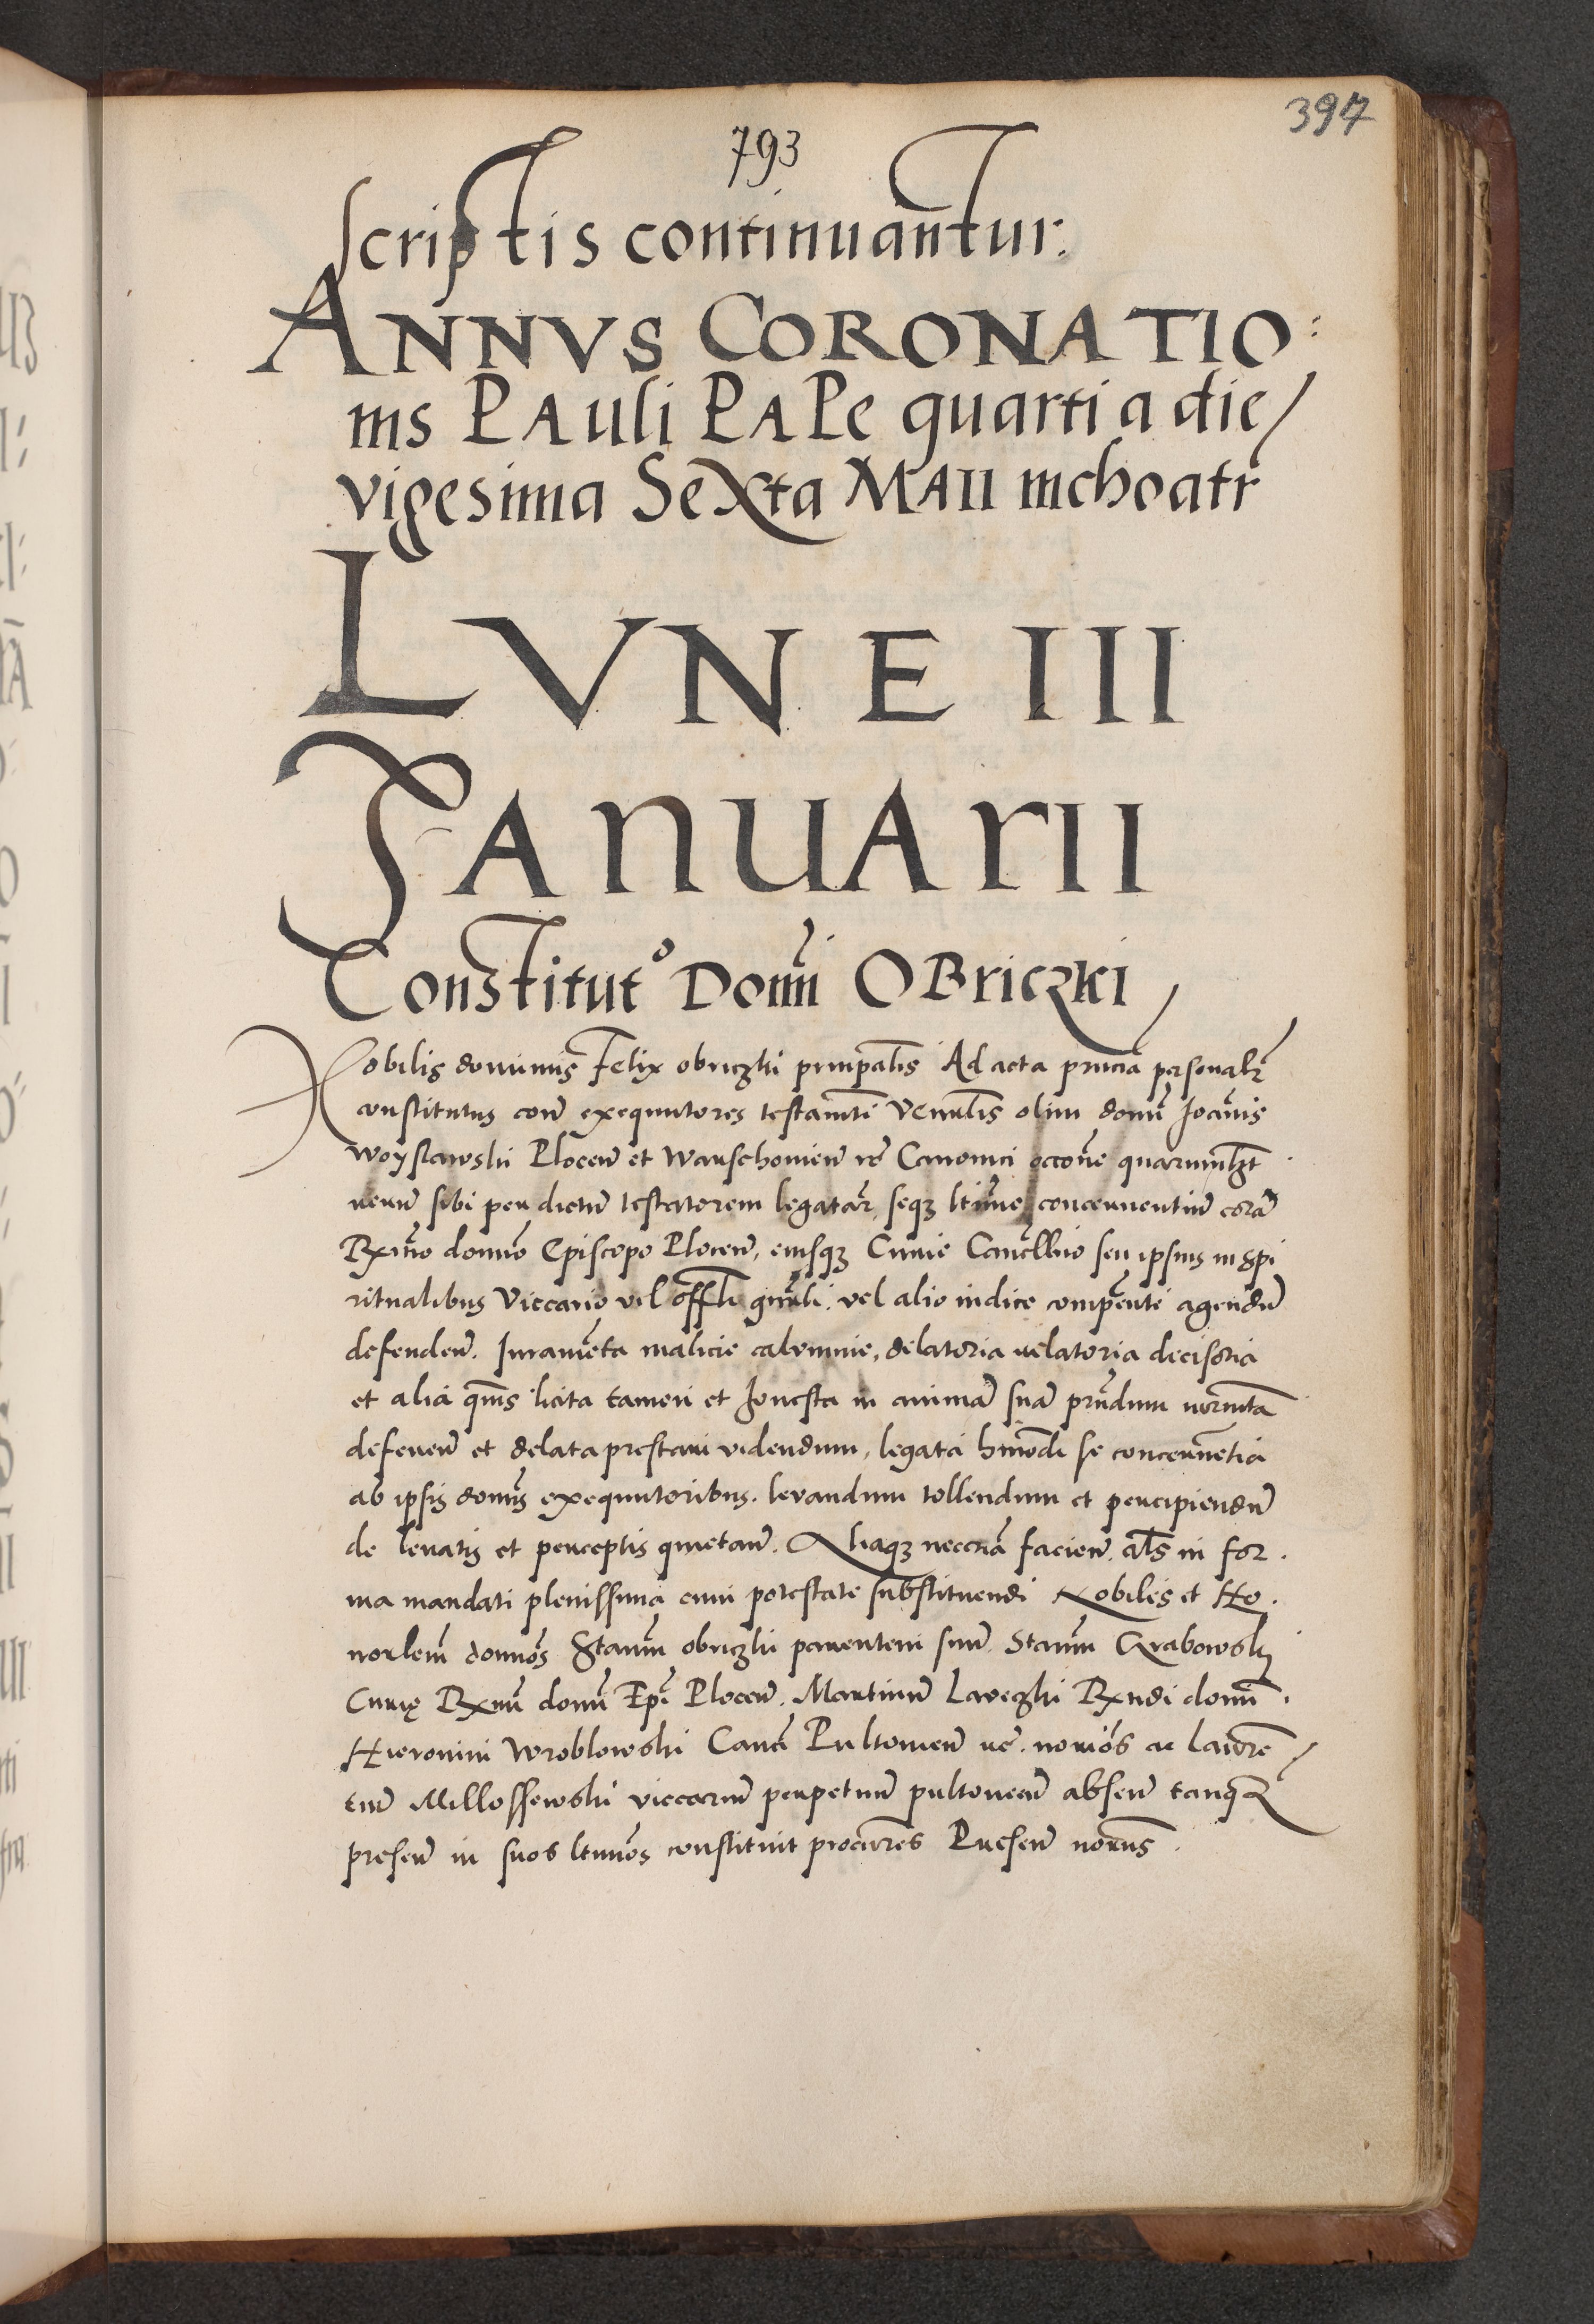 397
793
scriptis continuantur.
ANNVS CORONATIO:
nis PAuli PAPe quarti a die
vigesima Sexta MAII inchoatr
LVNE III
JANUArII
Constitut° Domi OBriczki
Nobilis dominus Felix obriczki principalis Ad acta pnticia personalr
constitutus coram exequutores testamti Venerlis olim domi Joanis
Woyslawski Plocen et Warschovien re Canonici occone quarumlzt
rerum sibi per dictum testatorem legatar, seq3 ltime concernentium cora
Rximo domno Episcopo Plocen, eiusq3 Curie Cancellrio seu ipsius in spi
ritualibus Viccario vel offli gnrali, vel alio iudice competenti agendum
defenden. Juramenta malicie calumnie, delatoria relatoria decisoria
et alia quevis licita tamen et honesta in animam suam prestandum
deferen et delata prestari videndum, legata hmodi se concernentia
ab ipsis domis exequutoribus levandum tollendum et percipiendum
de levatis et perceptis quietan. Aliaq3 neccria facien. als in for
ma mandati plenissima cum potestate substituendi Nobiles et Ho
norlem domos Stanm obriczki parentem suum. Stanm Grabowski
Curie Rximi domi Epi Plocen. Martinum Laveczki Rndi domi
Hieronimi Wroblowski Canci Pultovien re. notarios ac Lauren
tium Millossewski viccarium perpetuum pultovien absen tanq3
presen in suos ltimos constituit procurres Presen notariis